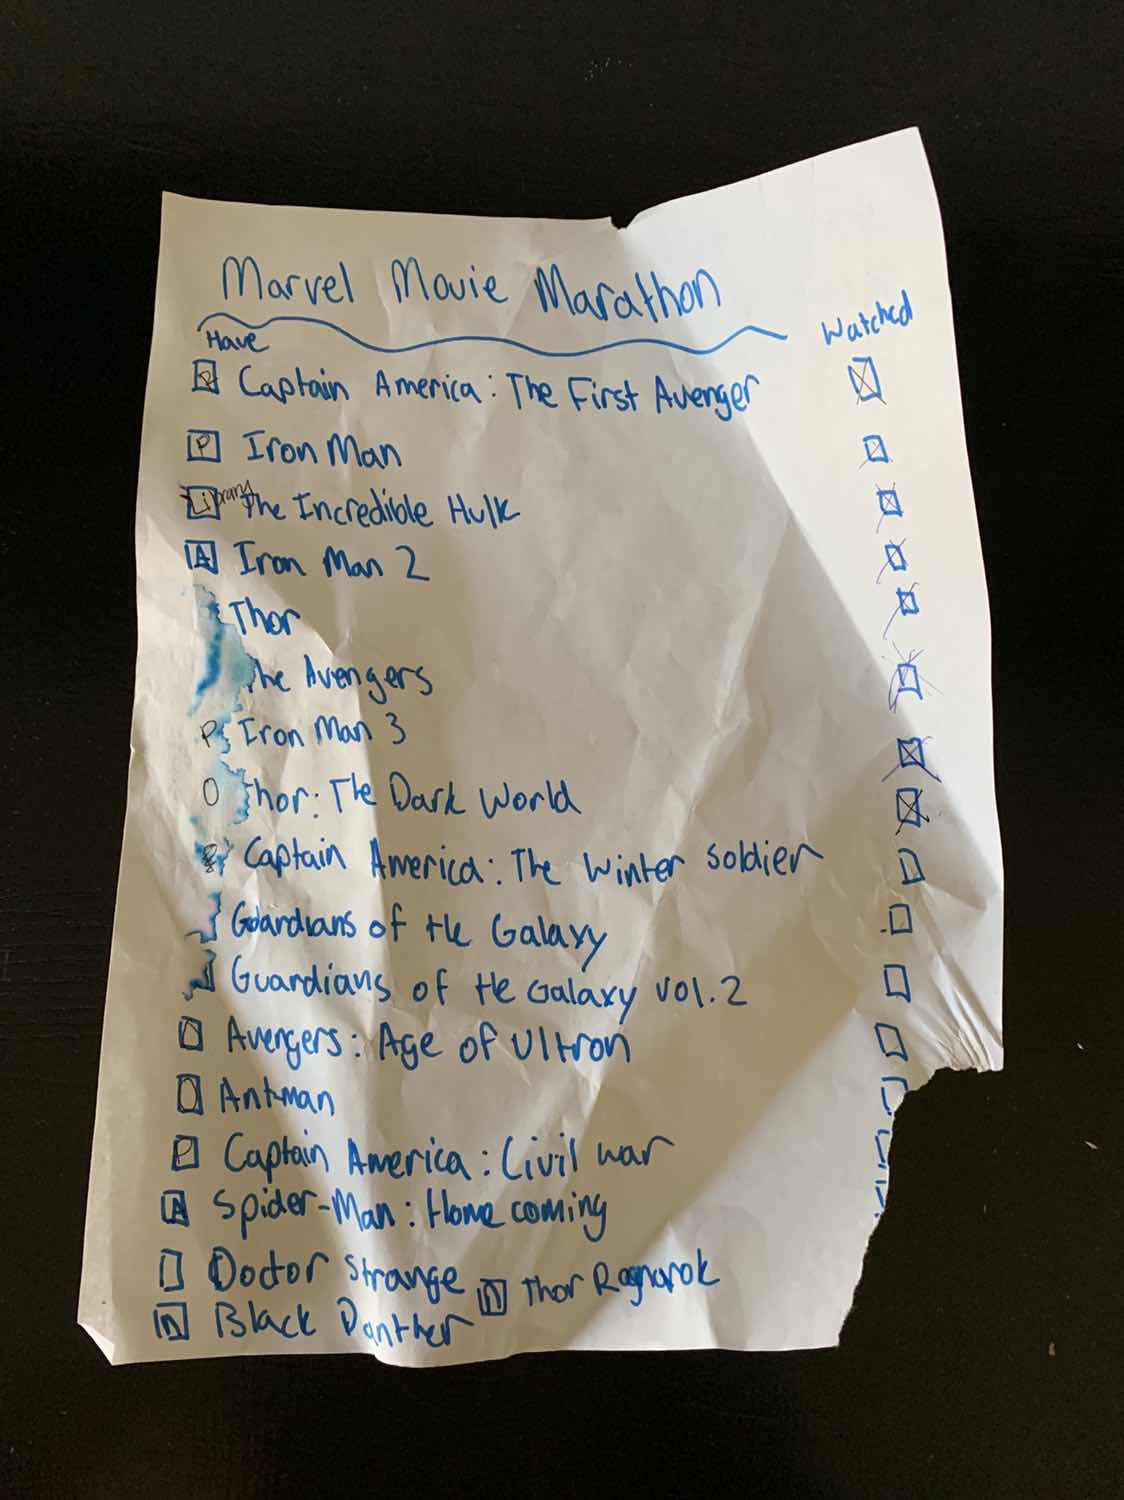 Marvel Movie Marathon
Have
Watched
Captain America: The First Avenger
P Iron Man
Library The Incredible Hulk
A Iron Man 2
Thor
The Avengers
P Iron Man 3
O Thor: The Dark World
Captain America: The Winter Soldier
Guardians of the Galaxy
Guardians of the Galaxy vol. 2
O Avengers: Age of Ultron
O Antman
P Captain America: Civil war
A Spider-Man: Home coming
Doctor Strange
n Thor Ragnarok
n Black Panther